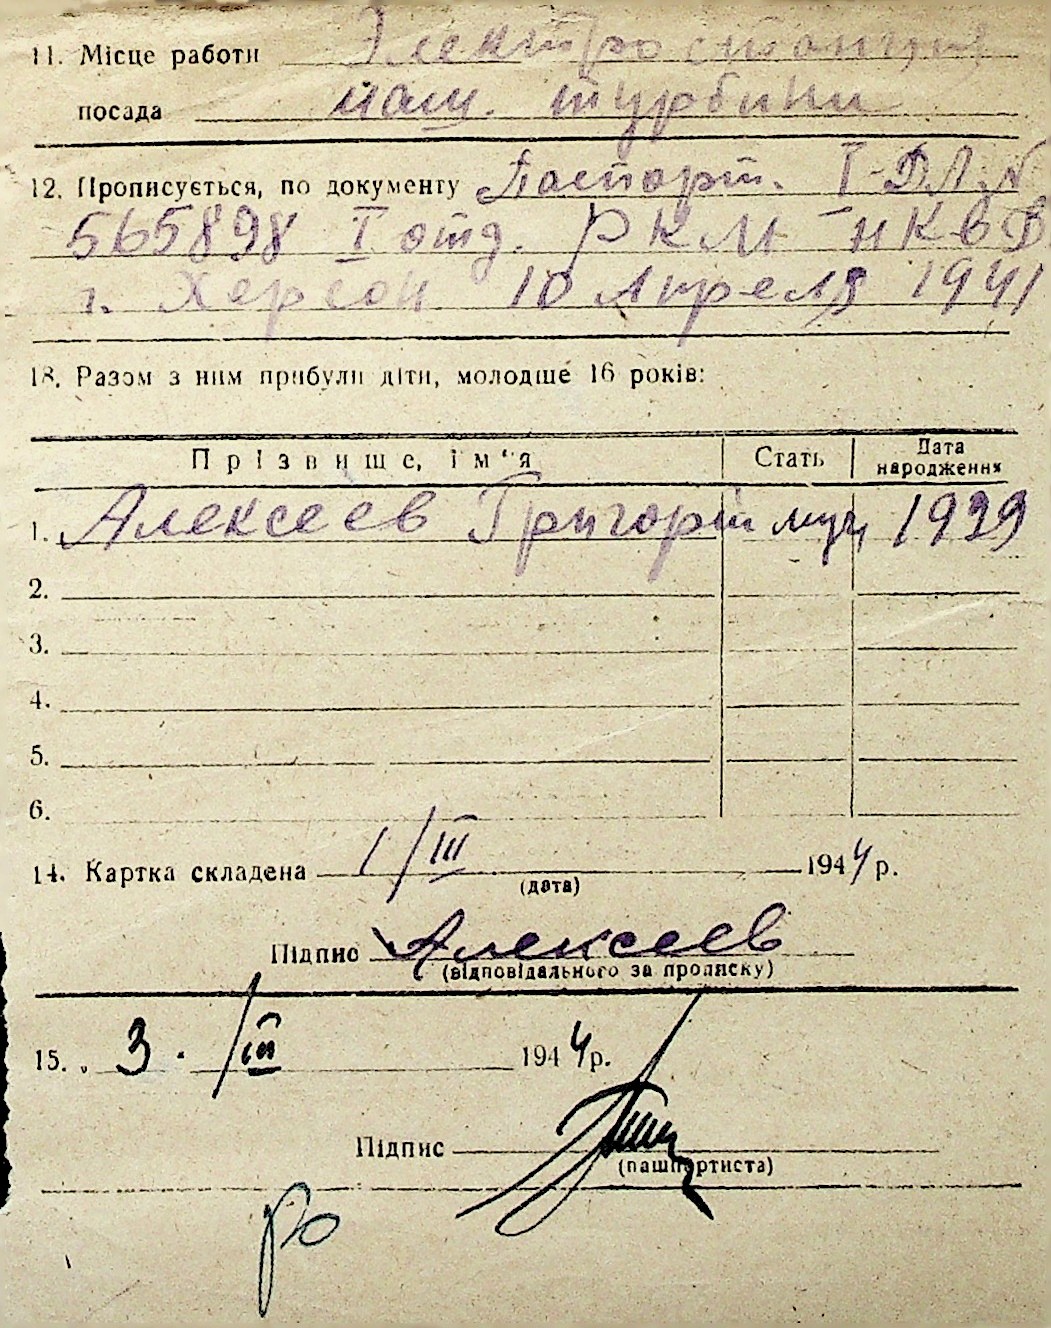 11. Місце работи Электростанция
посада маш. турбины
12. Прописується, по документу Паспорт. I-ДЛ. №
565898 I отд. РКМ НКВД
г. Херсон 10 Апреля 1941
13. Разом з ним прибули діти, молодше 16 років:
Прізвище, ім'я Стать Дата народження
1. Алексеев Григорий муж 1939
2.
3.
4.
5.
6.
14. Картка складена 1/III 1944 р.
(дата)
Підпис Алексеев
(відповідального за прописку)
15. „ 3. /III 1944 р.
Підпис
(пашпортиста)